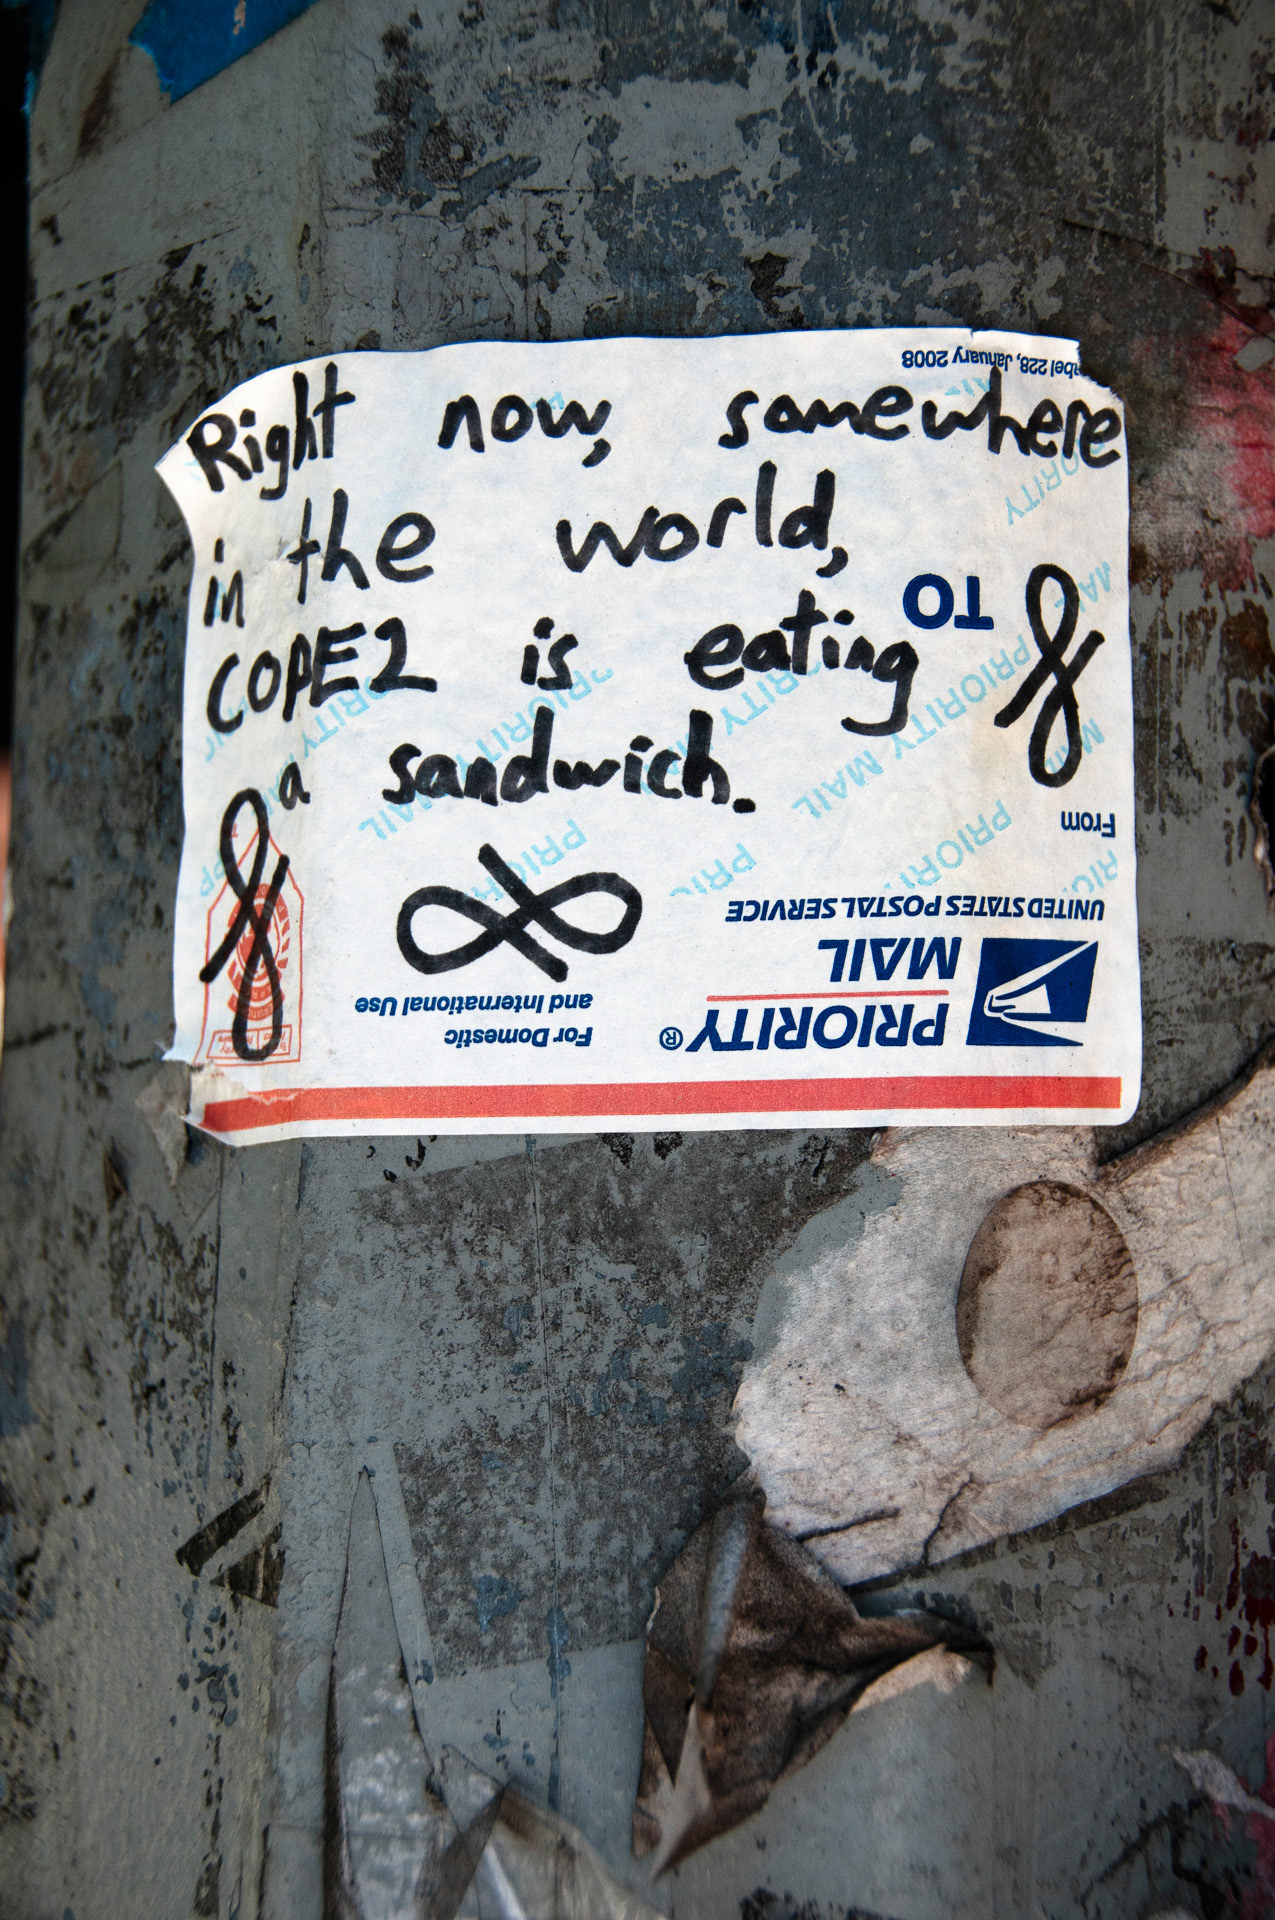 Right now, somewhere
in the world,
COPE2 is eating
a sandwich.
abel 228, January 2008
TO
From
UNITED STATES POSTAL SERVICE
PRIORITY®
MAIL
For Domestic
and International Use
PRIORITY MAIL